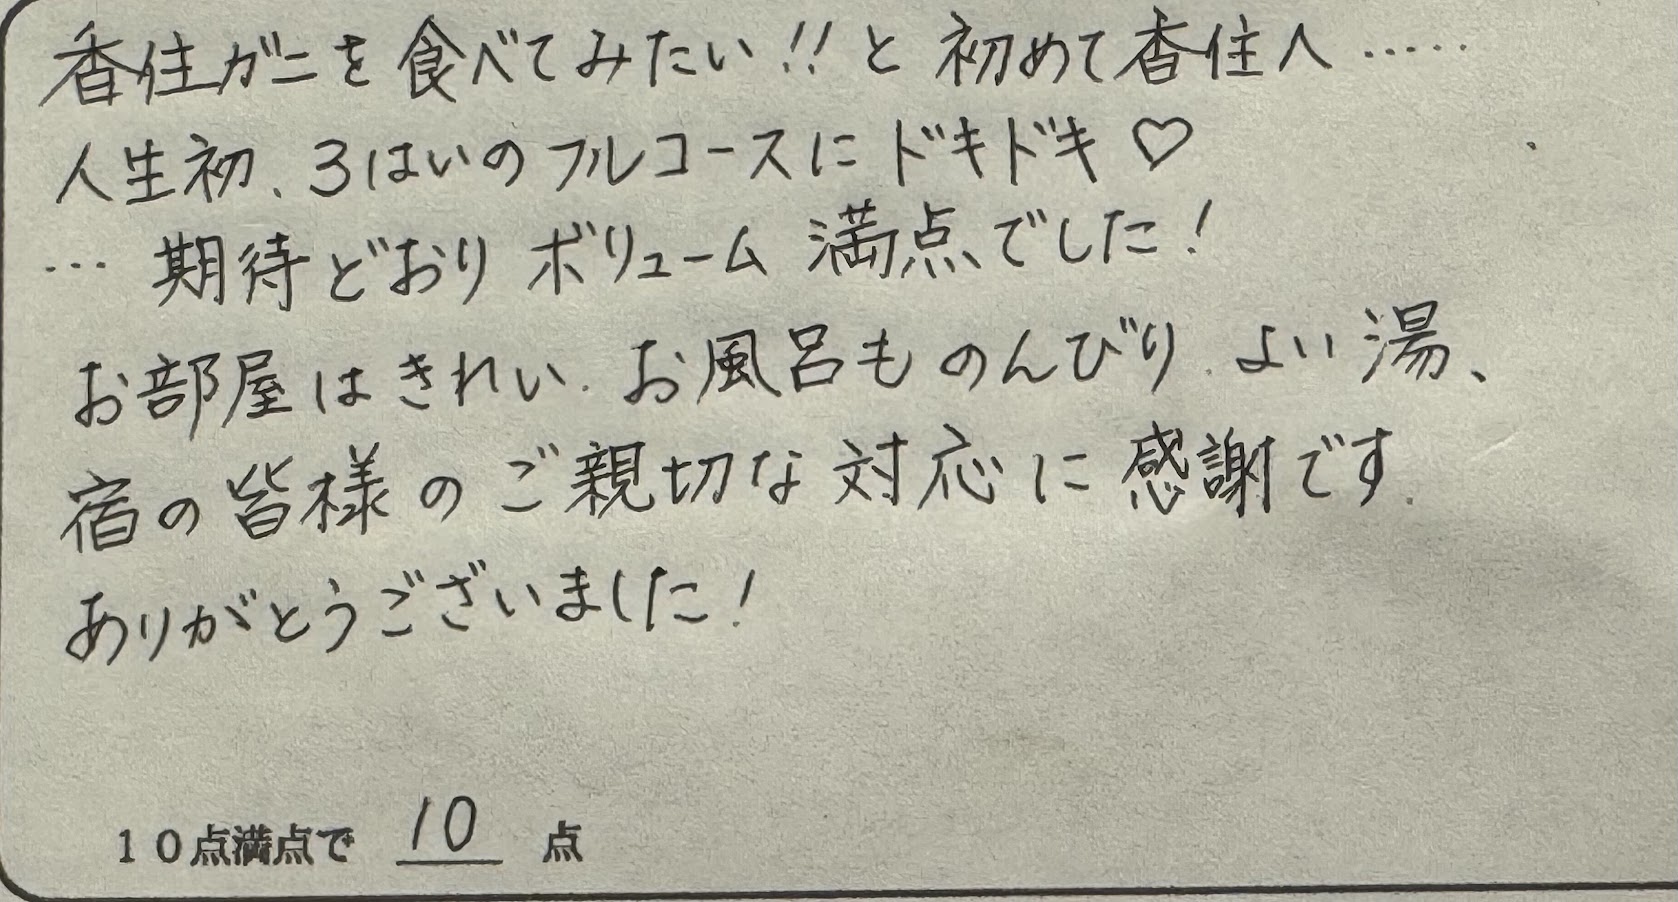 香住ガニを食べてみたい!!と初めて香住へ……
人生初、3はいのフルコースにドキドキ♡
… 期待どおりボリューム満点でした!
お部屋はきれい、お風呂ものんびり、よい湯、
宿の皆様のご親切な対応に感謝です。
ありがとうございました!
10点満点で 10 点